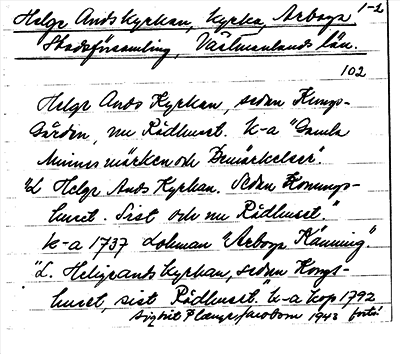 1-2
Helge Ands kyrkan, kyrka, Arboga
Stadsförsamling, Västmanlands län.
102
Helge Ands Kyrkan, sedan Kungs-
Gården, nu Rådhuset. k-a "Gamla
Minnesmärken och Bemärkelser".
"L Helge Ands Kyrkan. Sedan Konungs-
huset. Sist och nu Rådhuset."
k-a 1737 Lohman "Arboga Känning".
"L. Heligrands kyrkan, sedan Kongs-
huset, sist Rådhuset." k-a kop 1792
Sigurd Plænge Jacobson 1943